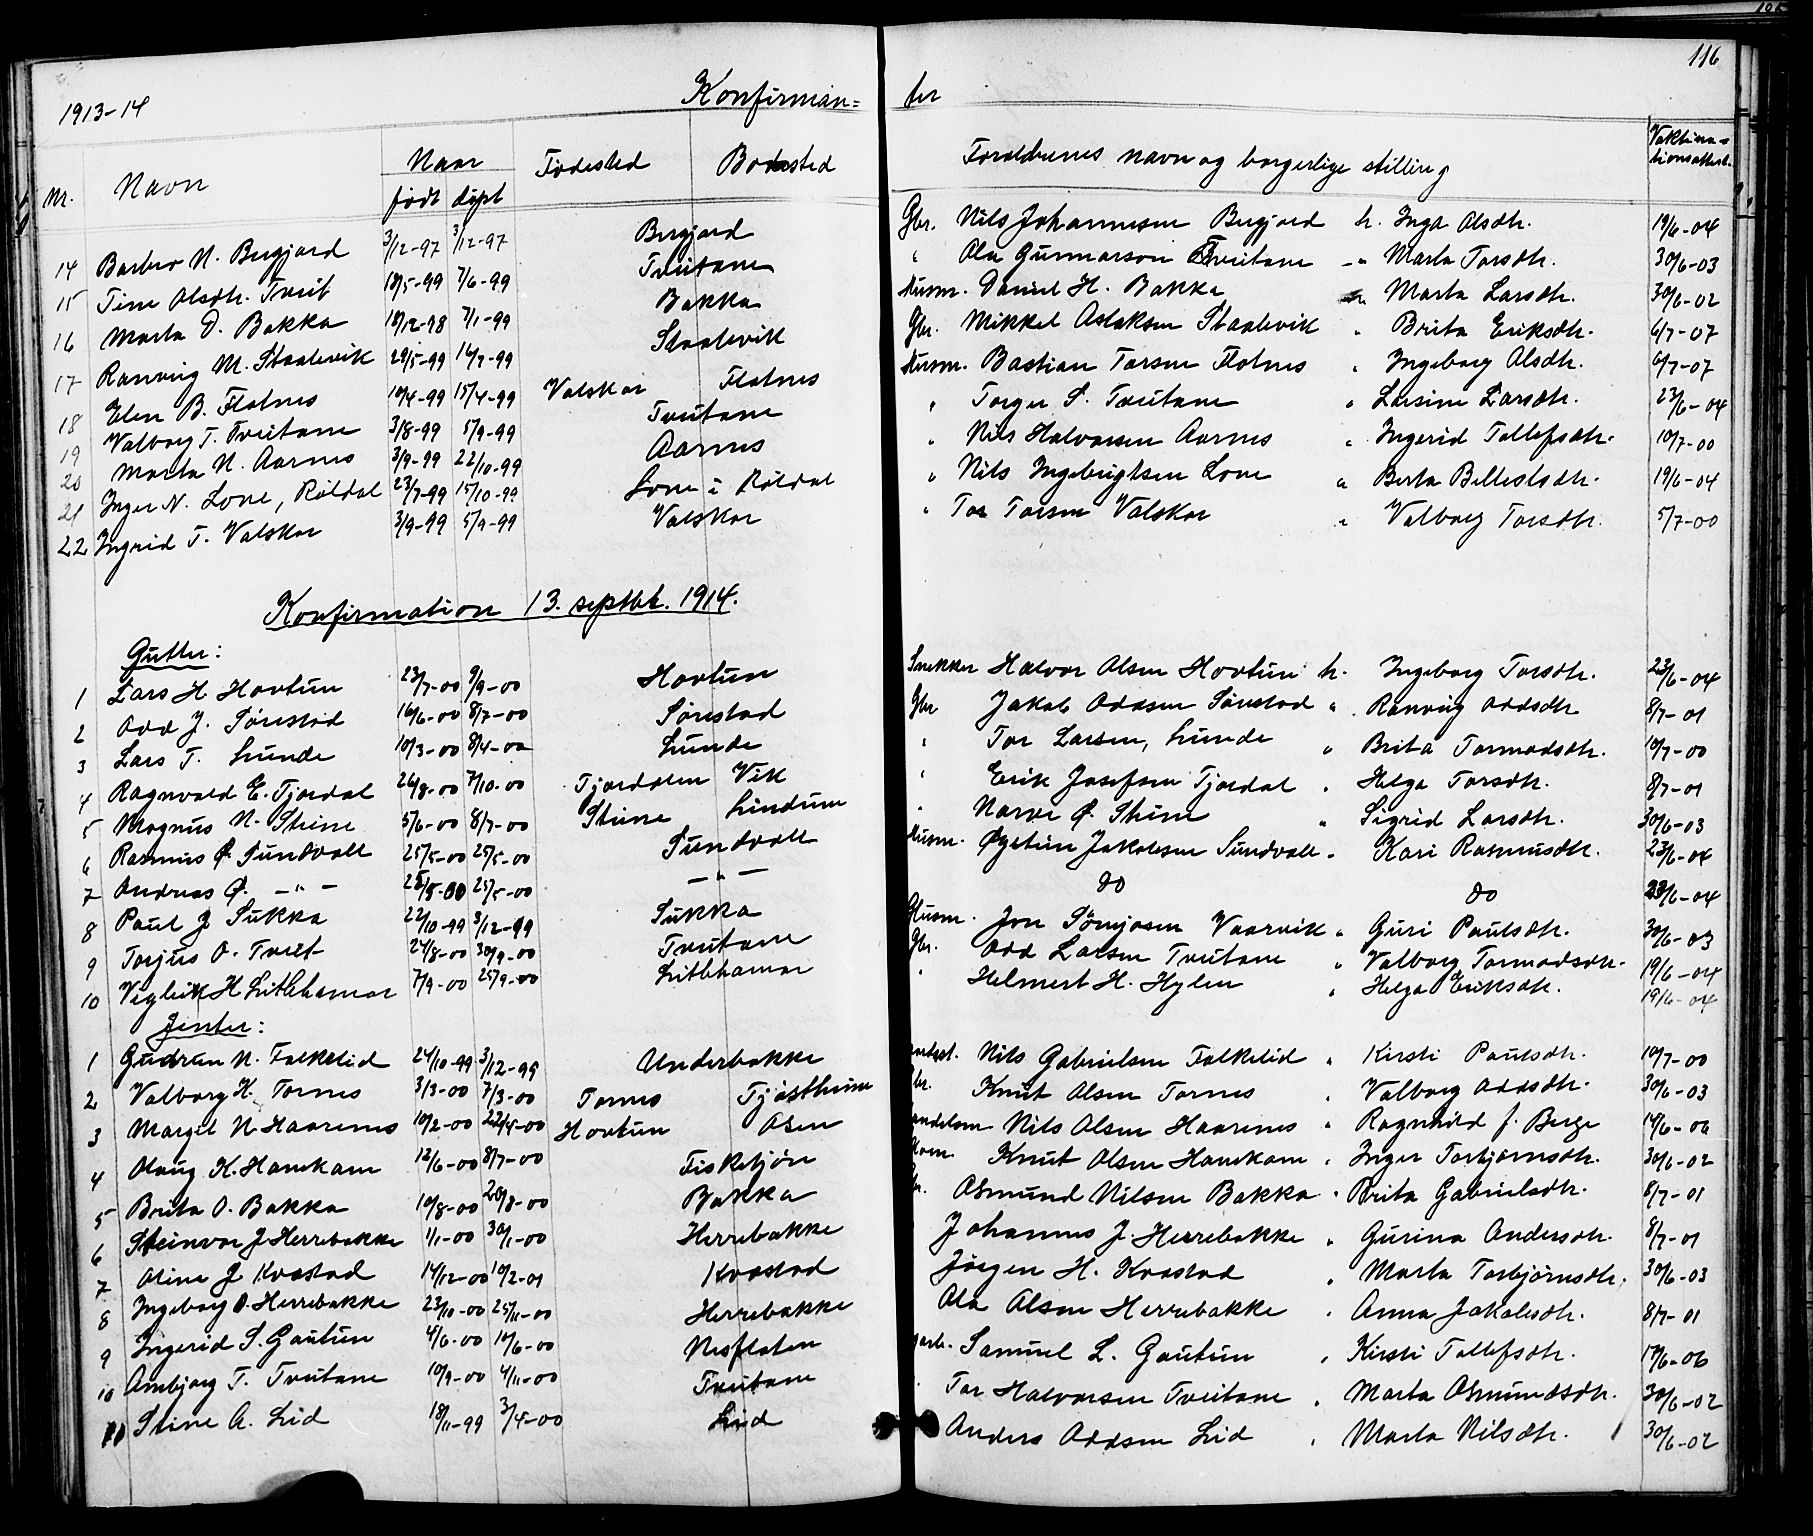 116
1913-14 Konfirman= ter
Nr. Navn Naar født døpt Fødested Bosted Forældrenes navn og borgerlige stilling Vaktina-tionsattest.
14 Barbro N. Bergjord 3/12-97 3/12-97 Bergjord Gbr. Nils Johannesen Bergjord h. Inga Olsdtr. 19/6-04
15 Tine Olsdtr. Tveit 18/5-99 7/6-99 Tveitane " Ola Gunnarson Tveitane " Marta Torsdtr. 30/6-03
16 Marta D. Bakka 18/12-98 7/1-99 Bakka Husm. Daniel H. Bakka h. Marta Larsdtr. 30/6-02
17 Ranveig M. Staalevik 29/5-99 16/7-99 Staalevik Gbr. Mikkel Aslaksen Staalevik " Brita Eriksdtr. 6/7-07
18 Elen B. Flatnes 10/4-99 15/4-99 Valskar Flatnes Husm. Bastian Torsen Flotnes " Ingeborg Olsdtr. 6/7-07
19 Valborg T. Tveitane 3/8-99 5/9-99 Tveitane " Torger S. Tveitane " Larsine Larsdtr. 23/6-04
20 Marta N. Aarnes 3/9-99 22/10-99 Aarnes " Nils Halvorsen Aarnes " Ingerid Tollefsdtr. 10/7-00
21 Inger N. Lone, Røldal 23/7-99 15/10-99 Lone i Røldal " Nils Ingebrigtsen Lone " Berta Bellestsdtr. 19/6-04
22 Ingrid T. Valskar 3/9-99 5/9-99 Valskar " Tor Torsen Valskar " Valborg Torsdtr. 5/7-00
Konfirmation 13. septbr. 1914.
Gutter:
1 Lars H. Hovtun 23/7-00 9/9-00 Hovtun Snekker Halvor Olsen Hovtun h. Ingeborg Torsdtr. 23/6-04
2 Odd J. Sørestad 16/6-00 8/7-00 Sørestad Gbr Jakob Oddsen Sørestad " Ranveig Oddsdtr 8/7-01
3 Lars T. Lunde 10/3-00 8/4-00 Lunde " Tor Larsen, Lunde " Brita Tormodsdtr. 10/7-00
4 Ragnvald E. Fjordal 26/8-00 7/10-00 Fjordalen Vik " Erik Josefsen Fjordal " Helga Torsdtr. 8/7-01
5 Magnus N. Steine 5/6-00 8/7-00 Steine Lindum " Narve Ø. Steine " Sigrid Larsdtr. 30/6-03
6 Rasmus Ø. Sundvall 25/5-00 25/5-00 Sundvall Husm. Øystein Jakobsen Sundvall " Kari Rasmusdtr. 23/6-04
7 Andreas Ø. - " - 25/5-00 25/5-00 - " - do do 23/6-04
8 Paul J. Sukka 22/10-99 3/12-99 Sukka Husm. Jon Sønjosen Vaarvik " Guri Paulsdtr. 30/6-03
9 Torjus O. Tveit 24/8-00 30/9-00 Tveitane Gbr. Odd Larsen Tveitane " Valborg Tormodsdtr. 19/6-04
10 Vigleik H Litlehamar 7/9-00 25/9-00 Litlehamar " Helmert H. Hylen " Helga Eriksdtr. 19/6-04
Jenter:
1 Gudrun N. Falkelid 24/10-99 3/12-99 Underbakke Nils Gabrielsen Falkelid " Kirsti Paulsdtr. 10/7-00
2 Valborg K. Tornes 3/3-00 7/3-00 Tornes Tjøstheim Knut Olsen Tornes " Valborg Oddsdtr. 30/6-03
3 Margit N. Haarenes 10/2-00 22/4-00 Hovtun Osen Nils Olsen Haarenes " Ragnhild J. Berge 14/6-06
4 Olaug K. Hanekam 12/6-00 8/7-00 Fisketjøn Knut Olsen Hanekam " Inger Torbjørnsdtr. 30/6-02
5 Brita O. Bakka 10/8-00 20/8-00 Bakka Osmund Nilsen Bakka " Brita Gabrielsdtr. 8/7-01
6 Steinvor J. Herrebakke 1/1-00 30/1-00 Herrebakke Johannes J. Herrebakke " Gurina Andersdtr. 8/7-01
7 Oline J Kvastad 14/12-00 10/2-01 Kvastad Jørgen H. Kvastad " Marta Torbjørnsdtr. 30/6-03
8 Ingeborg O. Herrebakke 23/10-00 25/11-00 Herrebakke Ola Olsen Herrebakke " Anna Jakobsdtr. 8/7-01
9 Ingerid S. Gautun 4/6-00 14/6-00 Nesflaten Samuel L. Gautun " Kirsti Tollefsdtr. 17/6-06
10 Ambjørg T. Tveitane 10/9-00 4/11-00 Tveitane Tor Halvorsen Tveitane " Marta Osmundsdtr. 30/6-02
11 Stine A. Lid 18/11-99 3/4-00 Lid Anders Oddsen Lid " Marta Nilsdtr. 30/6-02